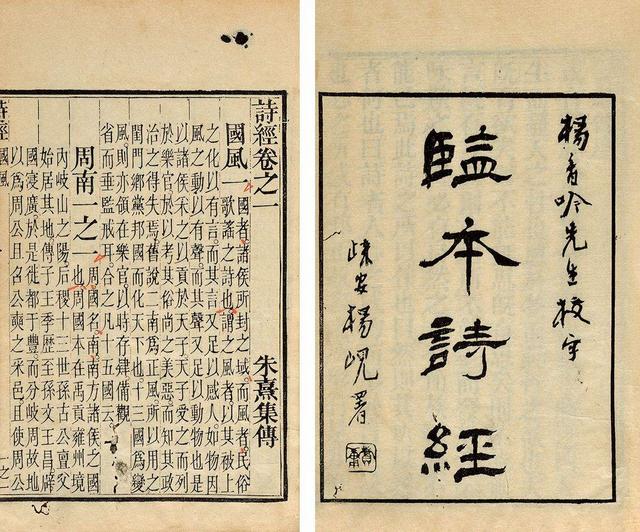 楊香吟先生校字
監本詩經
歸安楊峴署
詩經卷之一
朱熹集傳
國風一
國者諸侯所封之域而風者民俗
歌謠之詩也謂之風者以其被上
之化以有言而其言又足以感人如物因
風之動以有聲而其聲又足以動物也是
以諸侯采之以貢於天子天子受之而列
於樂官於以考其俗尚之美惡而知其政
治之得失焉舊說二南爲正風所以用之
閨門鄉黨邦國而化天下也十三國爲變
風則亦領在樂官以時存肄備觀
省而垂監戒耳合之凡十五國云
周南一之一
周國名南南方諸侯之國
也周國本在禹貢雍州境
內岐山之陽后稷十三世孫古公亶父
始居其地傳子王季歷至孫文王昌辟
國寖廣於是徙都于豐而分岐周故地
以爲周公旦召公奭之采邑且使周公
詩經
國風